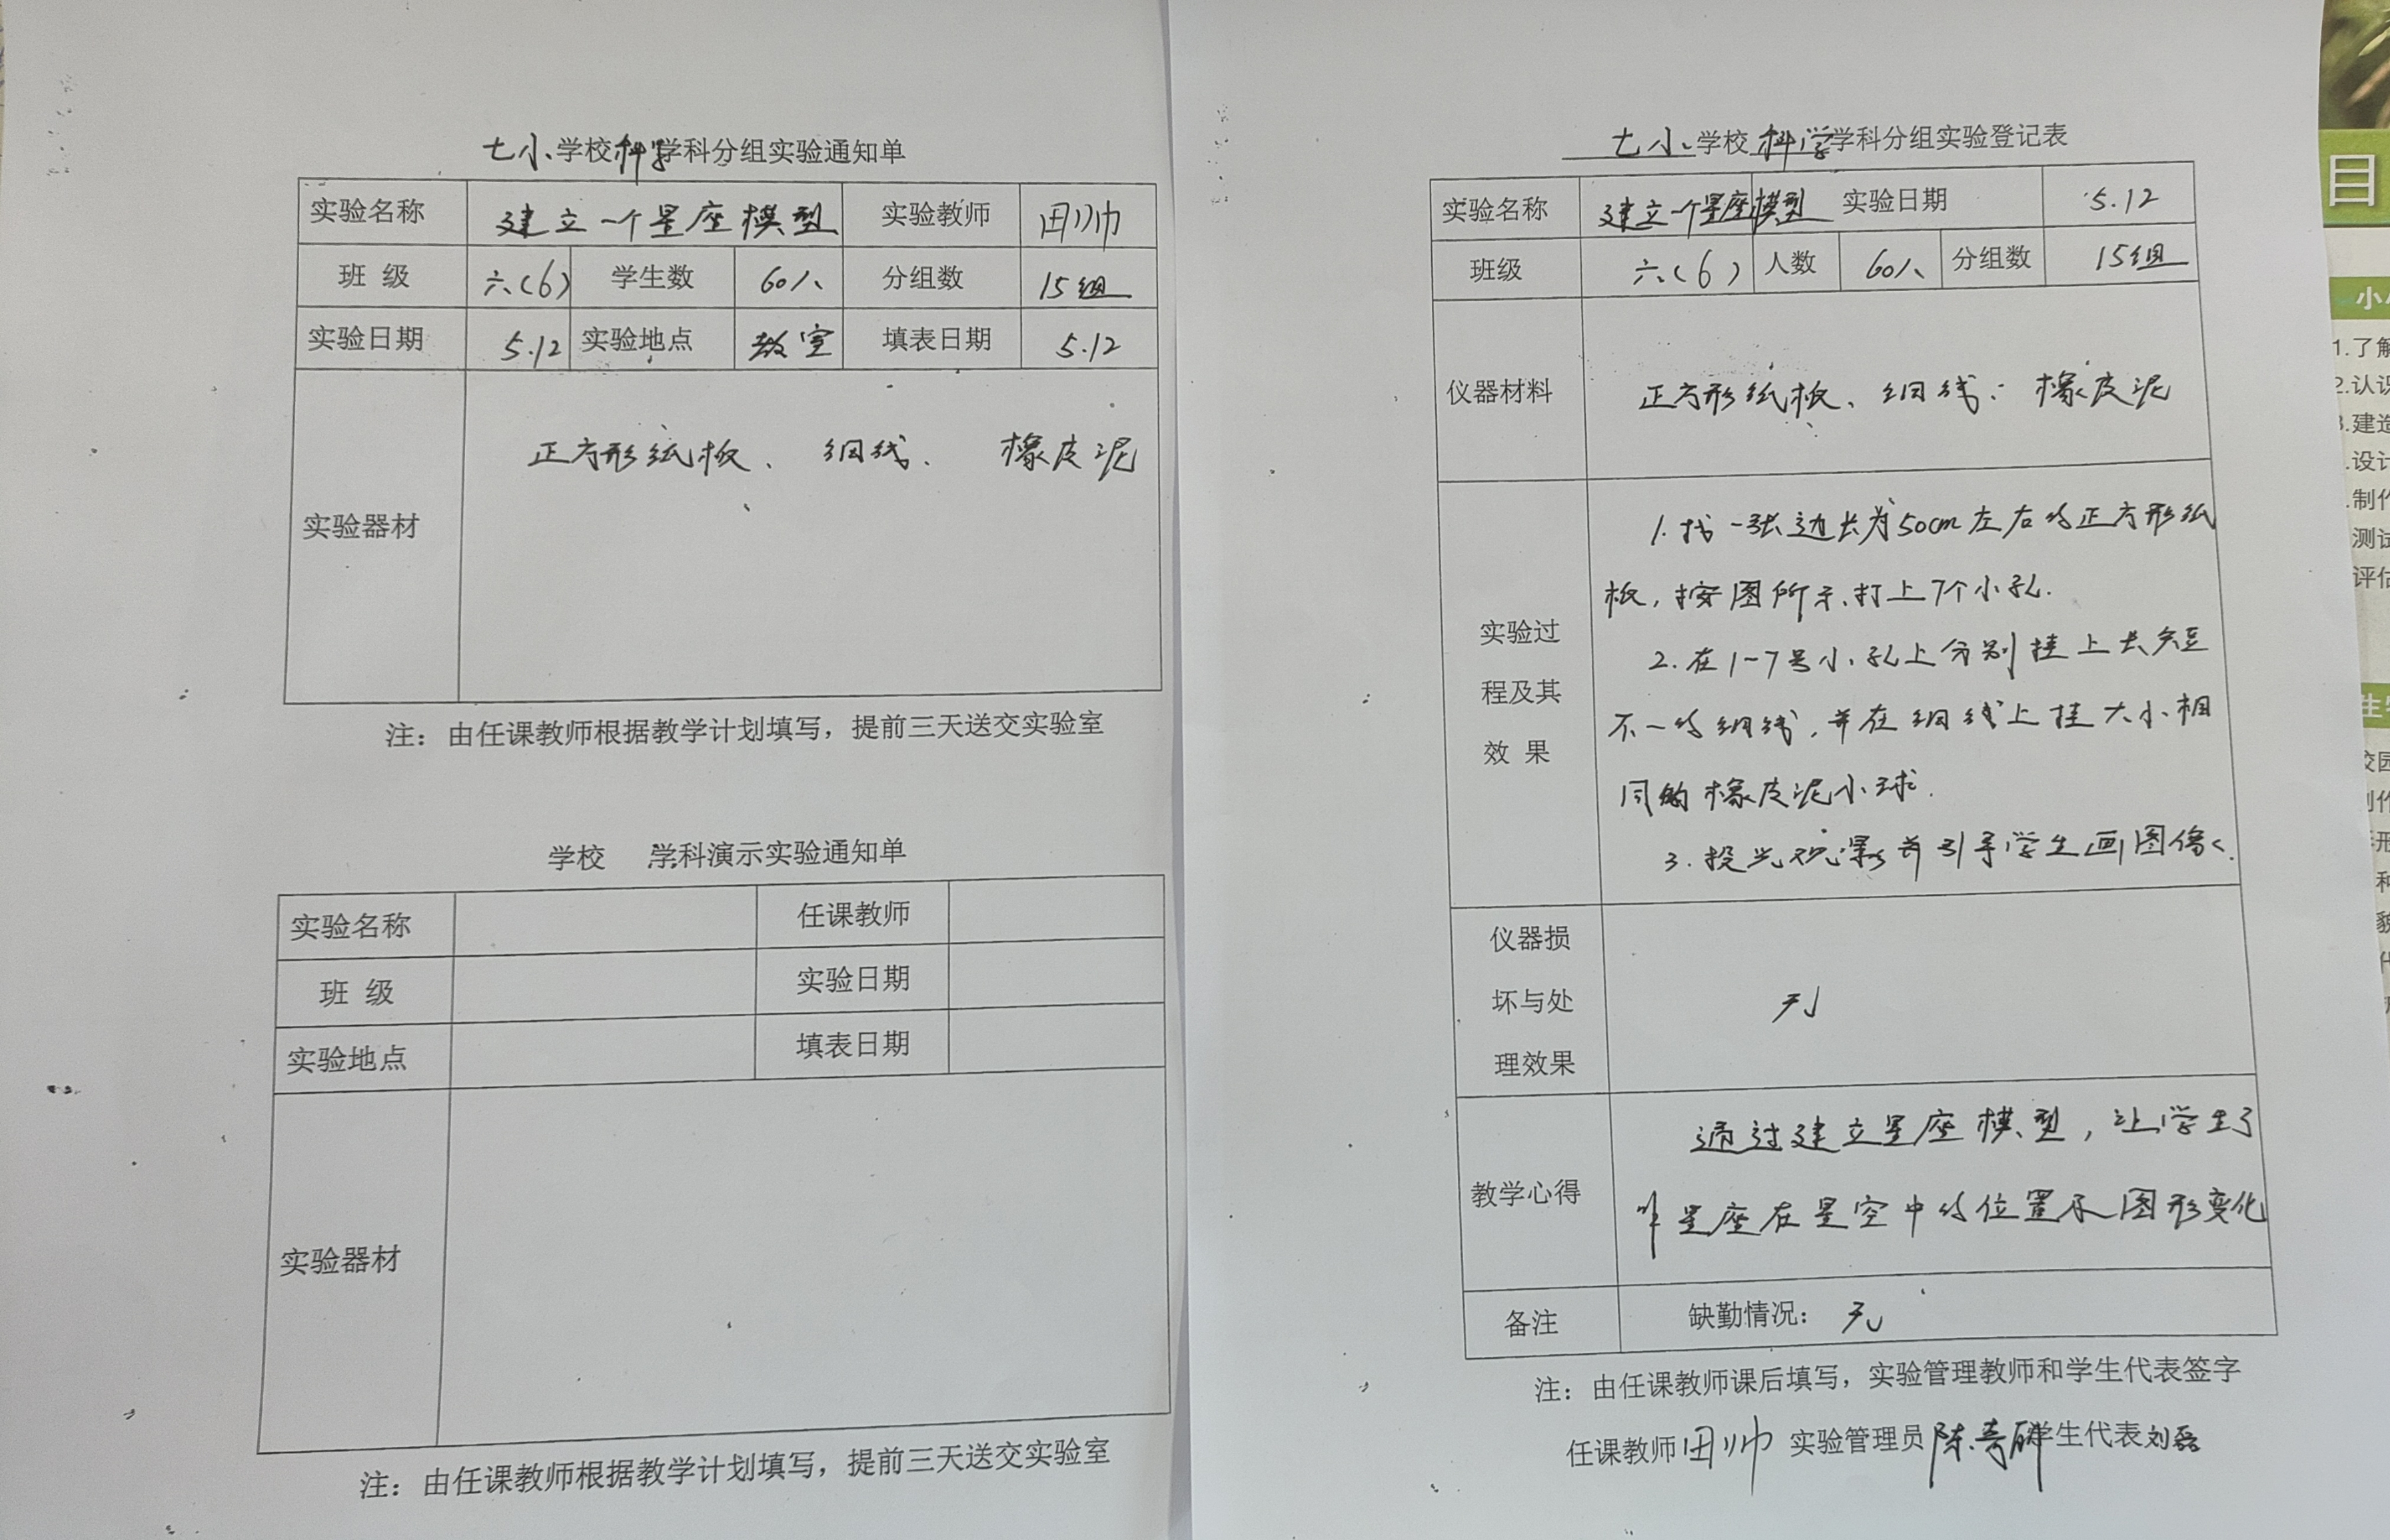 七小学校科学学科分组实验通知单
实验名称 建立一个星座模型 实验教师 田帅
班 级 六(6) 学生数 60人 分组数 15组
实验日期 5.12 实验地点 教室 填表日期 5.12
实验器材 正方形纸板、细线、橡皮泥
注：由任课教师根据教学计划填写，提前三天送交实验室
学校 学科演示实验通知单
实验名称 任课教师
班 级 实验日期
实验地点 填表日期
实验器材
注：由任课教师根据教学计划填写，提前三天送交实验室
七小学校科学学科分组实验登记表
实验名称 建立一个星座模型 实验日期 5.12
班级 六(6) 人数 60人 分组数 15组
仪器材料 正方形纸板、细线、橡皮泥
实验过
程及其
效 果
1.找一张边长为50cm左右的正方形纸
板，按图所示打上7个小孔.
2.在1-7号小孔上分别挂上长短
不一的细线，并在细线上挂大小相
同的橡皮泥小球.
3.投光观察并引导学生画图像.
仪器损
坏与处
理效果
无
教学心得
通过建立星座模型，让学生了
解星座在星空中的位置及图形变化
备注 缺勤情况：无
注：由任课教师课后填写，实验管理教师和学生代表签字
任课教师田帅 实验管理员陈 学生代表刘
目
1.了解
2.认识
3.建造
.设计
.制作
测试
评估